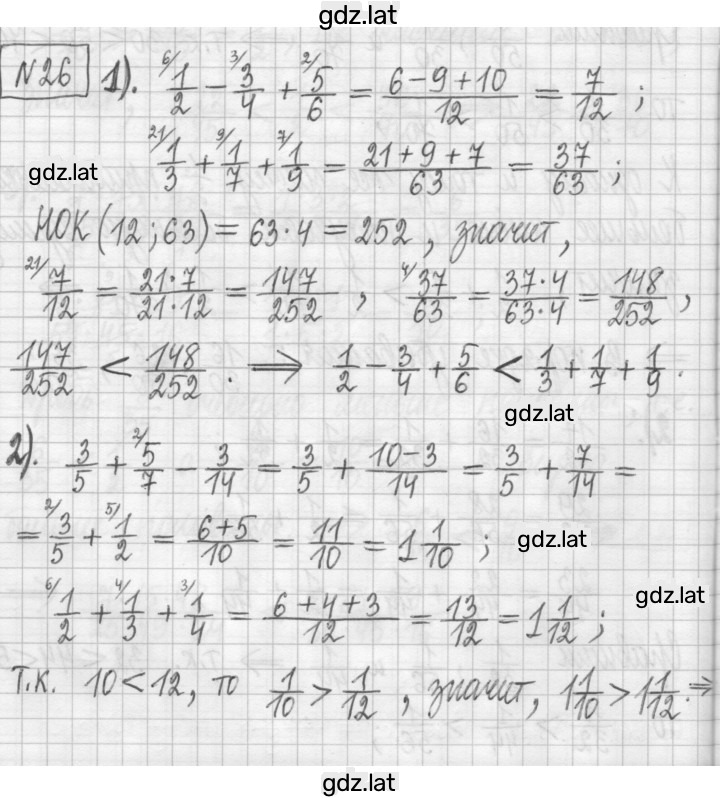 gdz.lat
№26 1). ⁶⁾1/2 − ³⁾3/4 + ²⁾5/6 = (6−9+10)/12 = 7/12 ;
gdz.lat ²¹⁾1/3 + ⁹⁾1/7 + ⁷⁾1/9 = (21+9+7)/63 = 37/63 ;
НОК(12;63) = 63·4 = 252, значит,
²¹⁾7/12 = (21·7)/(21·12) = 147/252 , ⁴⁾37/63 = (37·4)/(63·4) = 148/252 ,
147/252 < 148/252 . ⟹ 1/2 − 3/4 + 5/6 < 1/3 + 1/7 + 1/9 .
gdz.lat
2). 3/5 + ²⁾5/7 − 3/14 = 3/5 + (10−3)/14 = 3/5 + 7/14 =
= ²⁾3/5 + ⁵⁾1/2 = (6+5)/10 = 11/10 = 1 1/10 ; gdz.lat
gdz.lat
⁶⁾1/2 + ⁴⁾1/3 + ³⁾1/4 = (6+4+3)/12 = 13/12 = 1 1/12 ;
т.к. 10 < 12, то 1/10 > 1/12 , значит, 1 1/10 > 1 1/12 . ⟹
gdz.lat